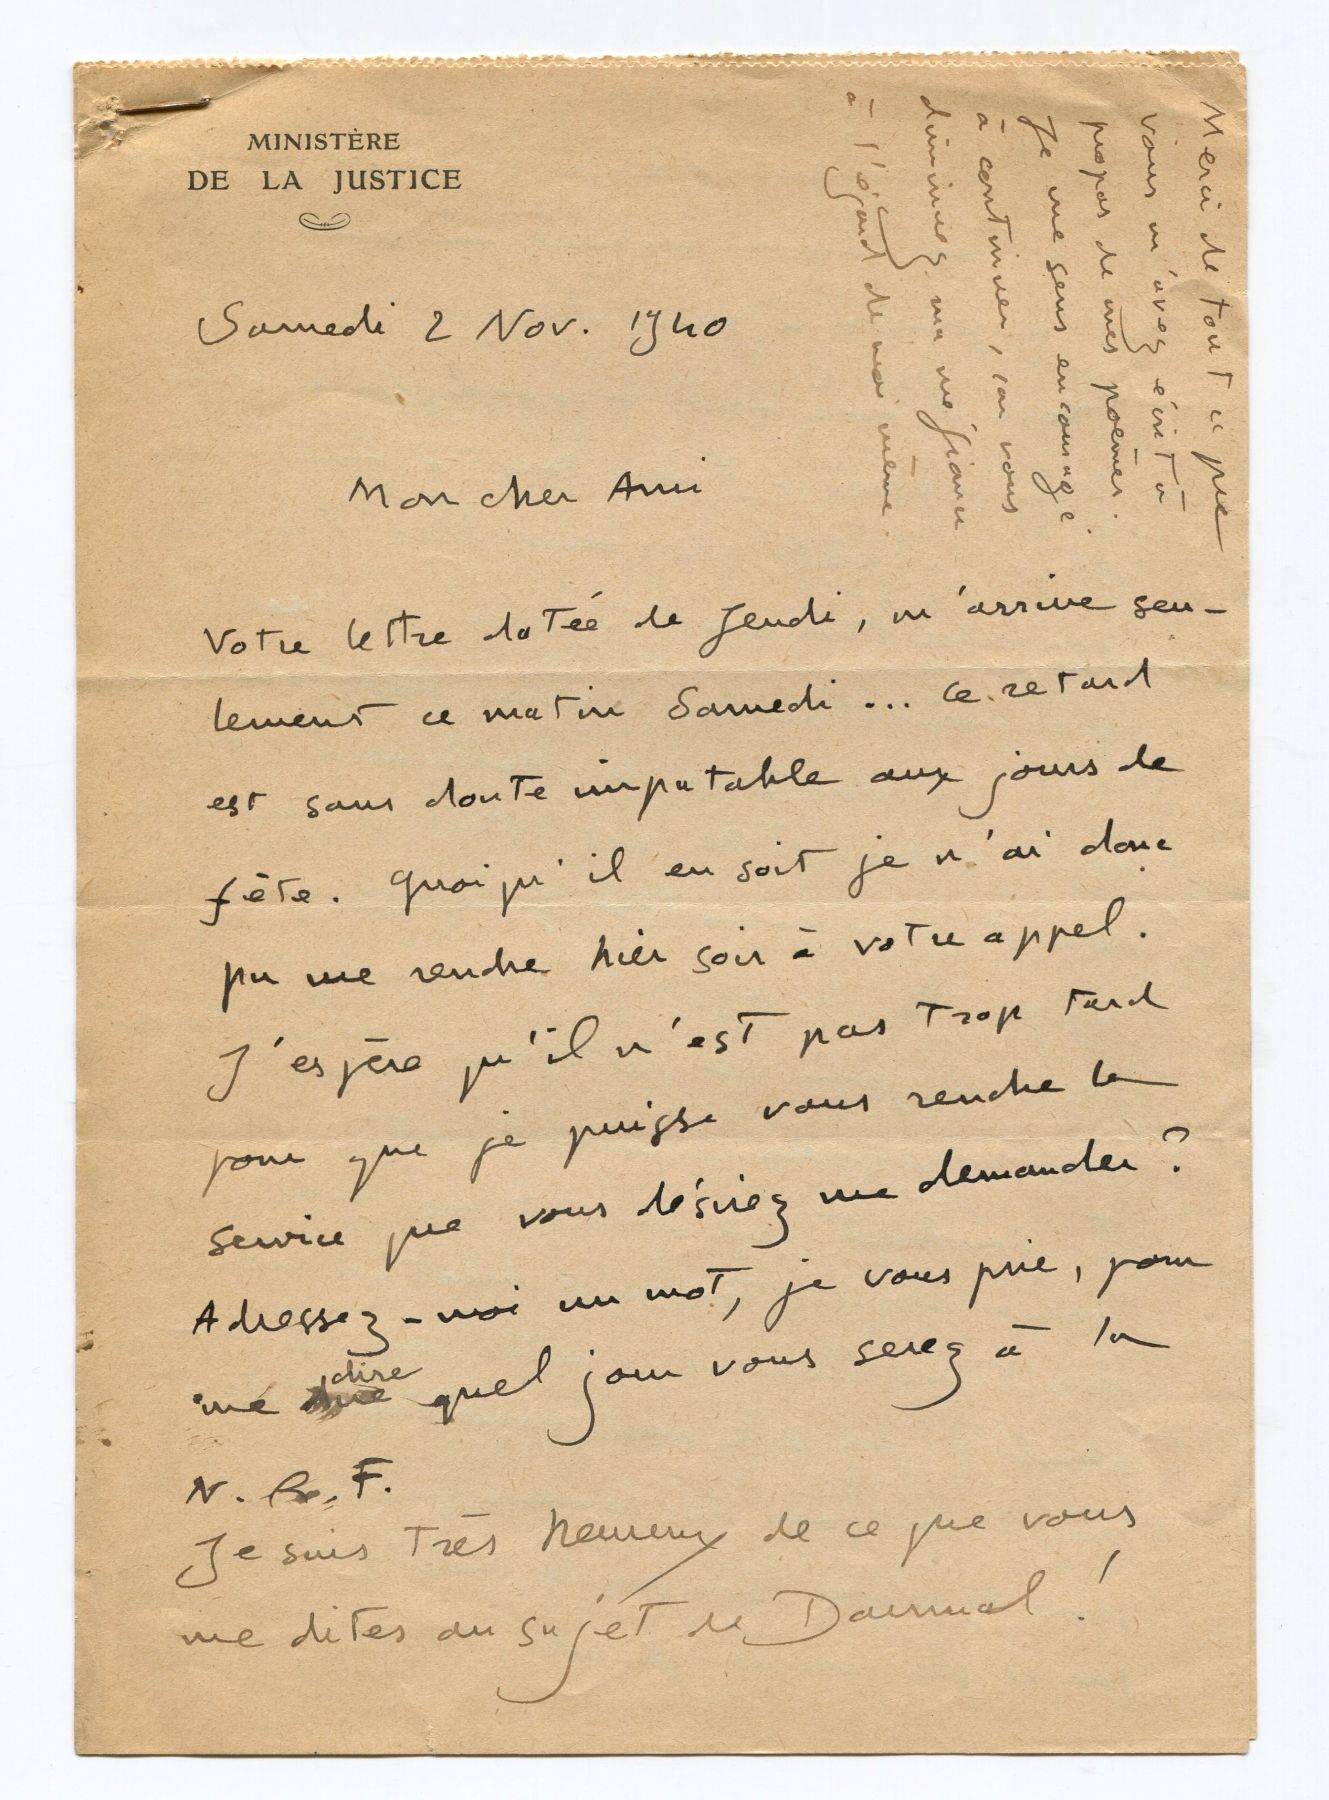 MINISTÈRE
DE LA JUSTICE
Samedi 2 Nov. 1940
Mon cher Ami
Votre lettre datée de Jeudi, m'arrive seu-
lement ce matin Samedi... Ce retard
est sans doute imputable aux jours de
fête. Quoiqu'il en soit je n'ai donc
pu me rendre hier soir à votre appel.
J'espère qu'il n'est pas trop tard
pour que je puisse vous rendre le
service que vous désirez me demander?
Adressez-moi un mot, je vous prie, pour
me dire quel jour vous serez à la
N.R.F.
Je suis très heureux de ce que vous
me dites au sujet de Daumal!
Merci de tout ce que
vous m'avez écrit à
propos de mes poèmes.
Je me sens encouragé
à continuer, car vous
diminuez ma méfiance
à l'égard de moi même.